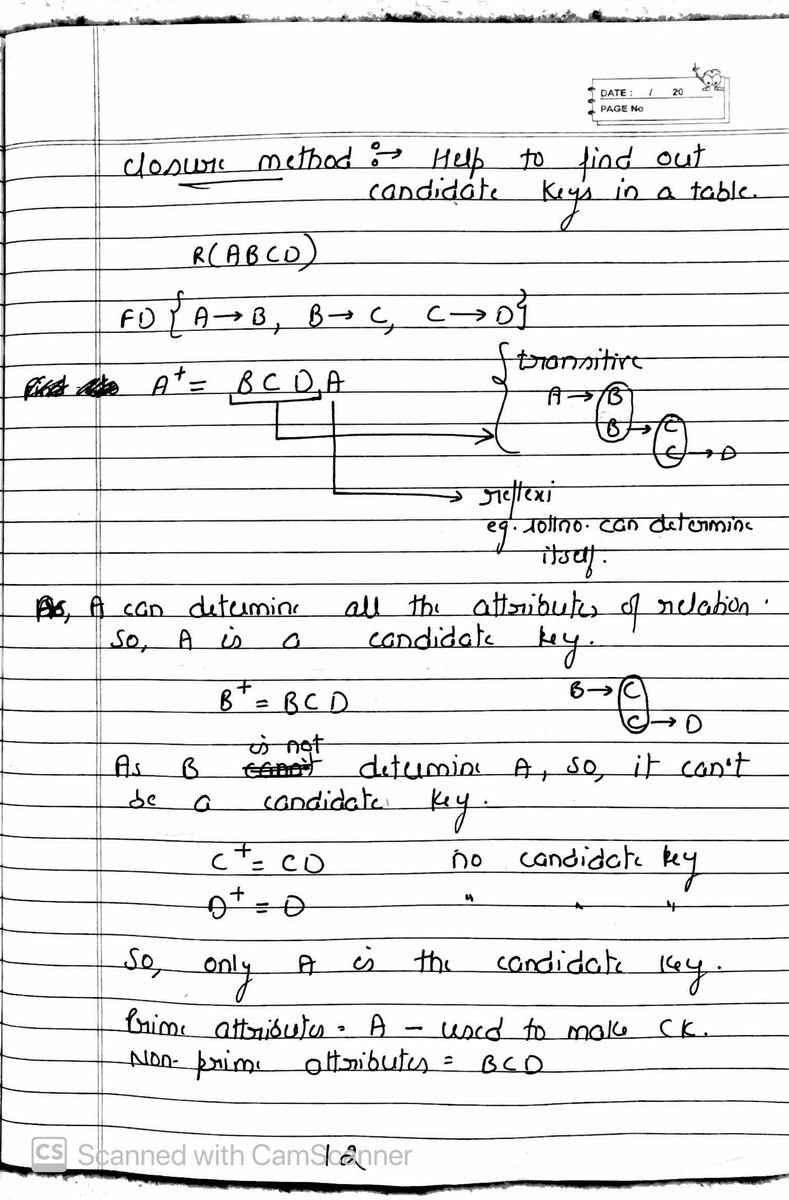 DATE : / 20
PAGE No
closure method :→ Help to find out
candidate keys in a table.
R(ABCD)
FD { A→B, B→C, C→D}
A⁺ = BCD,A
{ transitive
A→B
B→C
C→D
reflexi
eg. rollno. can determine
itself.
As, A can determine all the attributes of relation.
So, A is a candidate key.
B⁺ = BCD
B→C
C→D
is not
As B determine A, so, it can't
be a candidate key.
C⁺ = CD no candidate key
D⁺ = D " " "
So, only A is the candidate key.
Prime attributes = A – used to make CK.
Non-prime attributes = BCD
12
CS Scanned with CamScanner